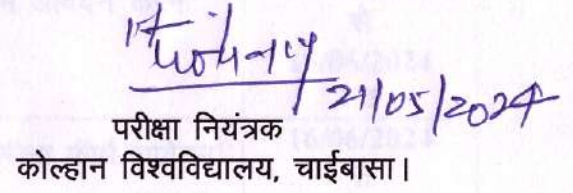 21/05/2024
परीक्षा नियंत्रक
कोल्हान विश्वविद्यालय, चाईबासा।